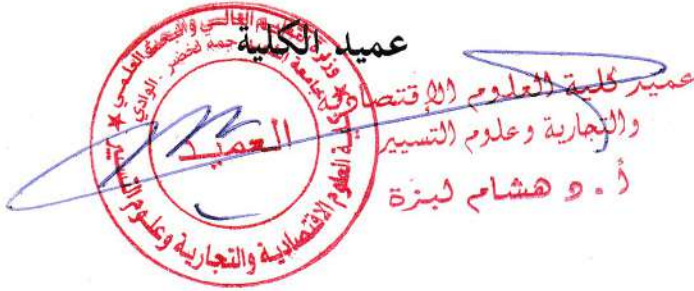 عميد الكلية
عميد كلية العلوم الإقتصادية
والتجارية وعلوم التسيير
أ. د هشام لبزة
وزارة التعليم العالي والبحث العلمي
جامعة الشهيد حمه لخضر - الوادي
كلية العلوم الاقتصادية والتجارية وعلوم التسيير
العميد